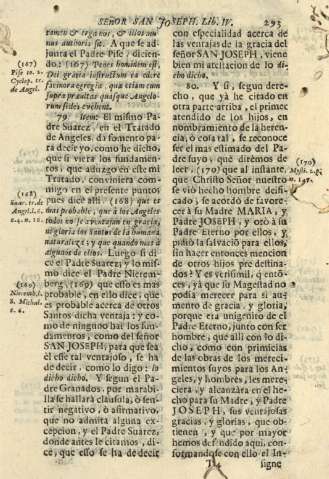 SEÑOR SAN JOSEPH. Lib. IV. 293
tamen & rogamus, & illorum
nus authoris sit. A que se ad-
junta el Padre Pise, dicien-
do: (167) Tenet hominem est.
Dei gratia infra suam ea edere
favoraegregia, qua etiam cum
supra praealtas quasque Angelo-
rum sedes evehent.
79. Item: El mismo Pa-
dre Suarez, en el Tratado
de Angeles, dá fomento pa-
ra decir yo, como he dicho,
que si viera los fundamen-
tos, que aduzgo en este mi
Tratado, conviniera con-
migo en el presente punto:
pues dice alli: (168) que es
mas probable, que à los Angeles
todos no se excedan en gracia,
ni gloria los Santos de la humana
naturaleza: y que quando mas à
algunos de ellos. Luego si di-
ce el Padre Suarez, y lo mis-
mo dice el Padre Nierem-
berg, (169) que esso es mas
probable, en ello dice: que
es probable acerca de otros
Santos dicha ventaja: y co-
mo de ningnno hai los fun-
damentos, como del señor
SAN JOSEPH, para que sea
èl esse tal ventajoso, se ha
de decir, como lo digo: la
dicho dicho. Y segun el Pa-
dre Granados, por marabi-
lla se hallarà clausula, ò sen-
tir negativo, ò afirmativo,
que no admita alguna ex-
cepcion, y el Padre Suarez,
donde antes le citamos, di-
ce, que esso se ha de decir
(167)
Pise to. 2.
Cyclop. tr.
de Angel.
(168)
Suar. tr. de
Angel. l. 6.
c. 4. n. 18.
(169)
Nieremb. l.
S. Michael.
c. 6.
con especialidad acerca de
las ventajas de la gracia del
señor SAN JOSEPH, viene
bien mi anteladion de lo di-
cho dicho.
80. Y si, segun dere-
cho, que yà he citado en
otra parte arriba, el primer
atendido de los hijos, en
nombramiento de la heren-
cia, ò cosa tal, se reconoce
ser el mas estimado del Pa-
dre suyo, què dirèmos de
leer, (170) que al instante,
que Christo Señor nuestro
se viò hecho hombre deifi-
cado, se acordò de favore-
cer à su Madre MARIA, y
Padre JOSEPH, y orò à su
Padre Eterno por ellos, y
pidiò la salvaciò para ellos,
sin hacer entonces mencion
de otros hijos predestina-
dos? Y es verisimil, q entòn-
ces, yà que su Magestad no
podia merecer para sì au-
mento de gracia, y gloria,
porque era unigenito de el
Padre Eterno, junto con ser
hombre, que alli con lo di-
cho, y como con primicias
de las obras de los mereci-
mientos suyos para los An-
geles, y hombres, les mere-
ciera, y alcanzàra en el he-
cho para su Madre, y Padre
JOSEPH, sus ventajosas
gracias, y glorias, que ob-
tienen, y que por mayor
hemos defendido aqui, con-
formandose con ello el In-
signe
(170)